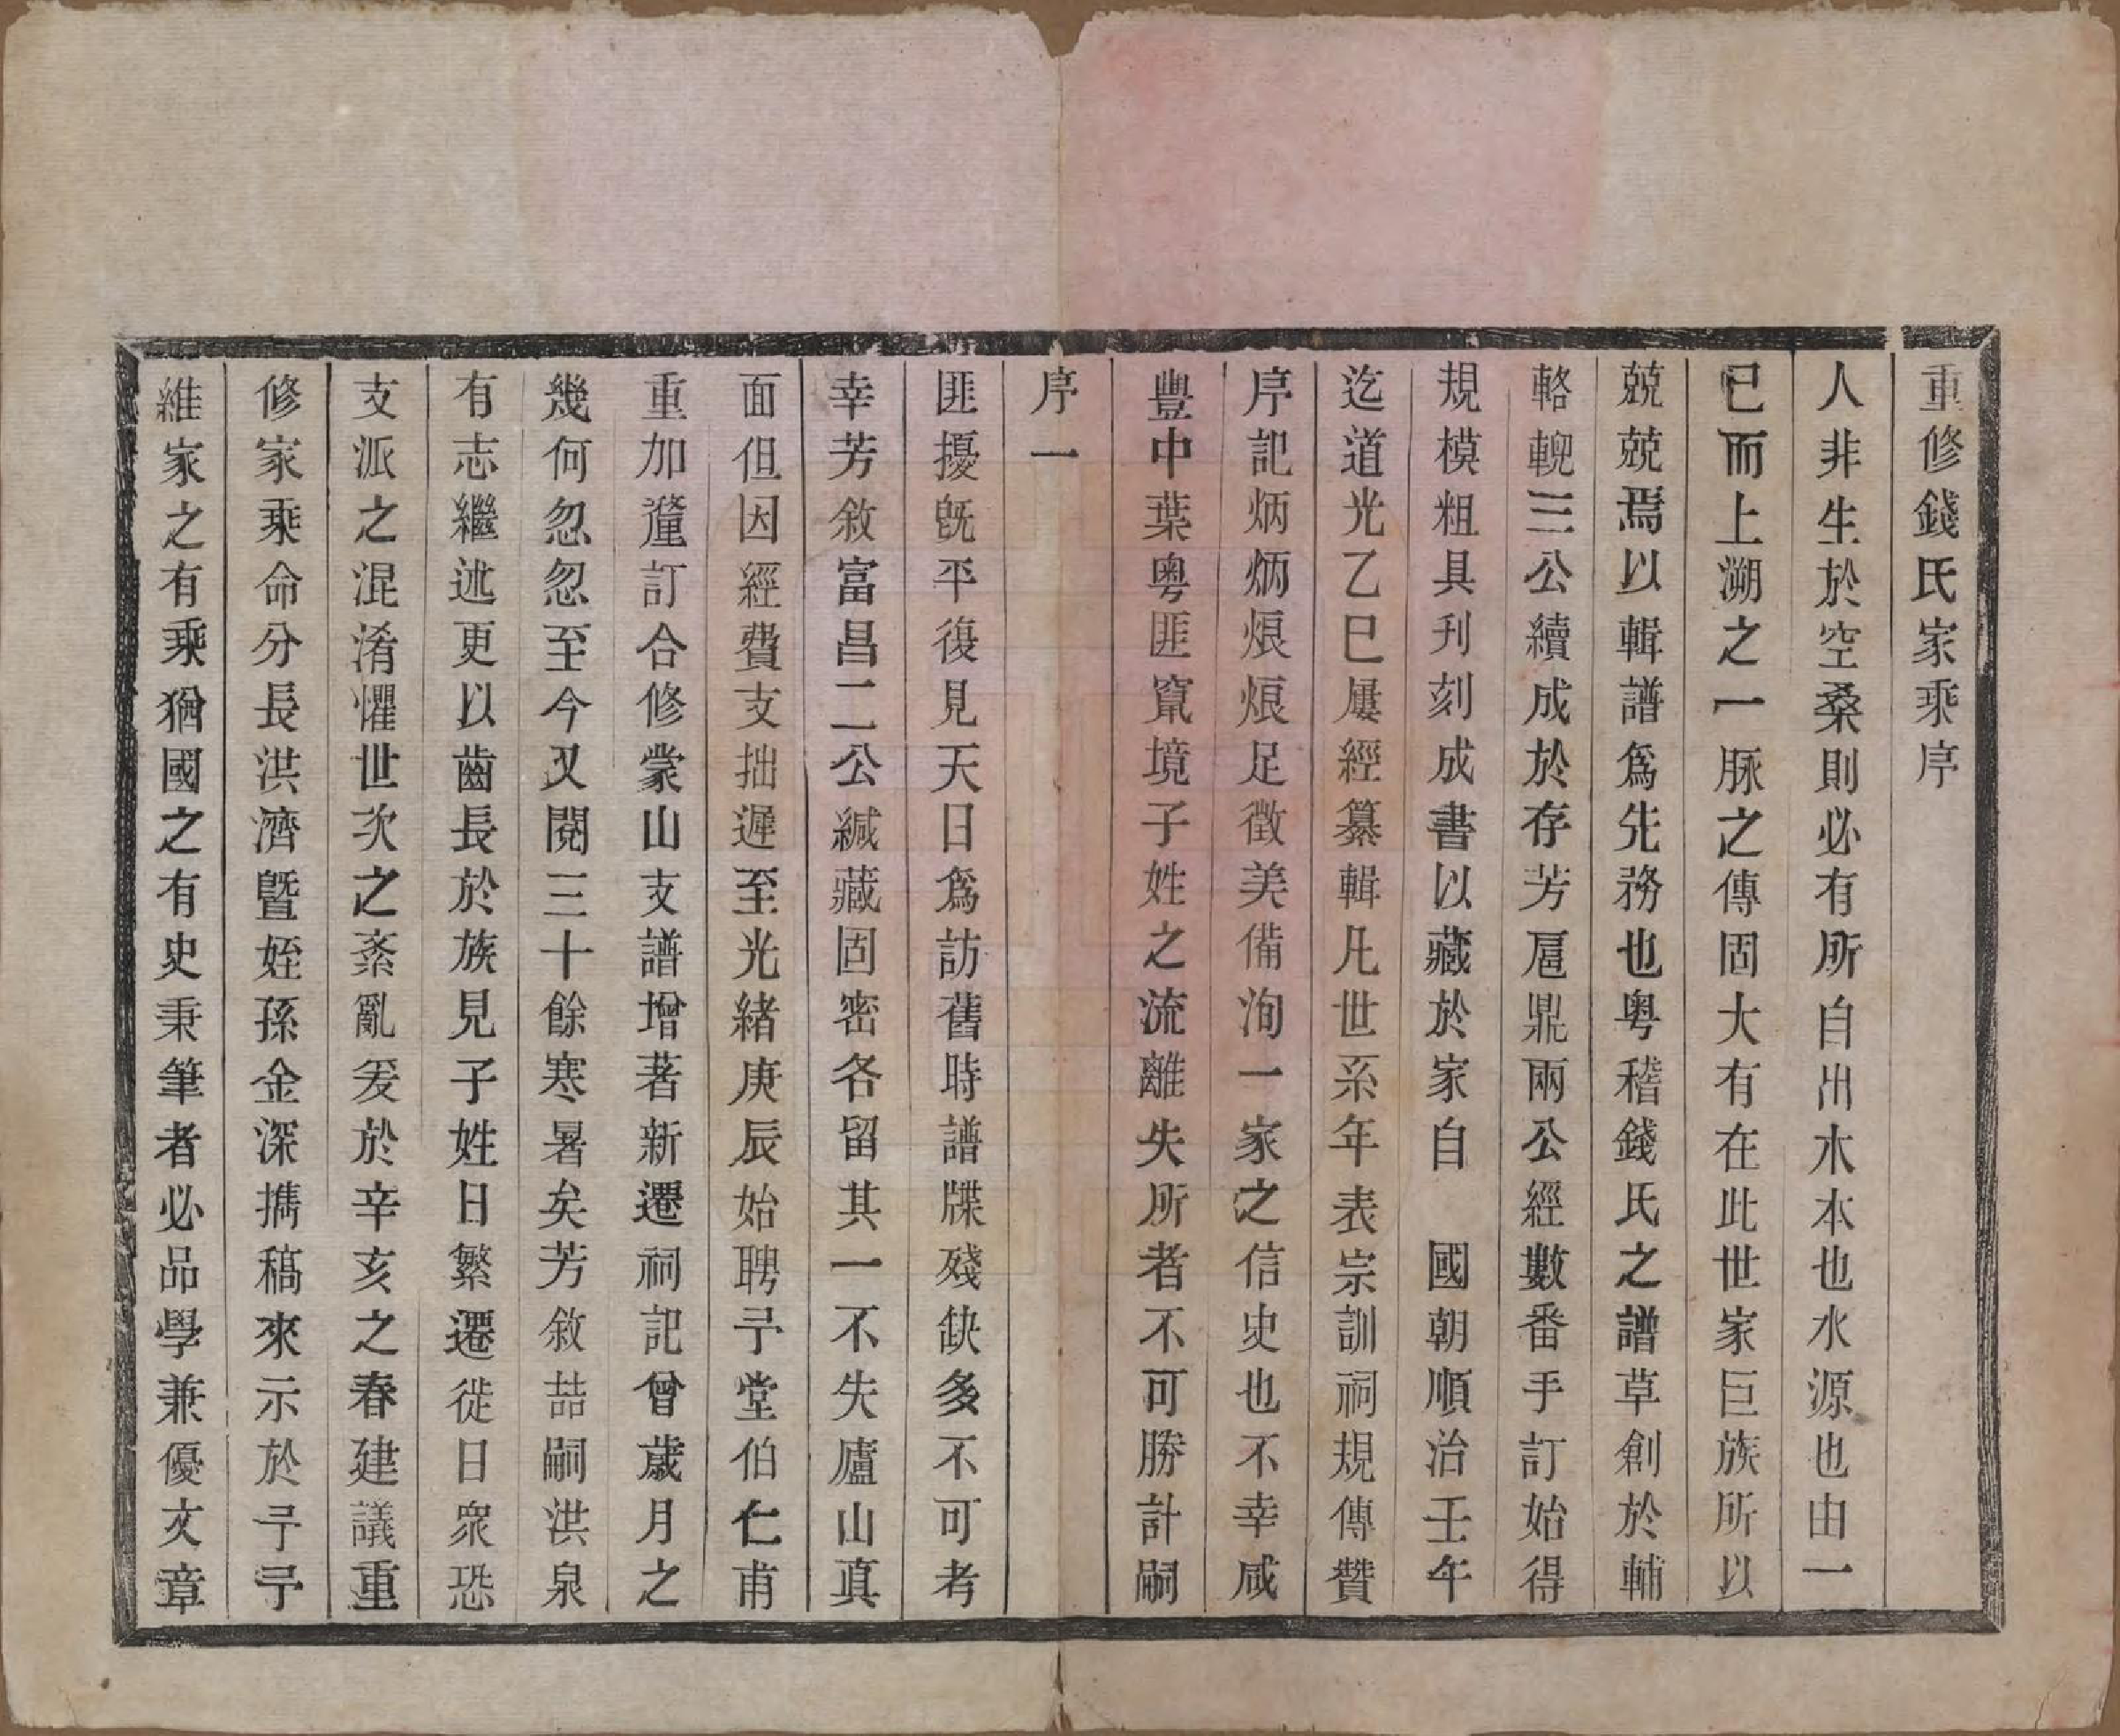 重修錢氏家乘序
人非生於空桑則必有所自出木本也水源也由一
已而上溯之一脈之傳固大有在此世家巨族所以
兢兢焉以輯譜爲先務也粵稽錢氏之譜草創於輔
輅輗三公續成於存芳扈鼎兩公經數番手訂始得
規模粗具刋刻成書以藏於家自　國朝順治壬午
迄道光乙巳屢經纂輯凡世系年表宗訓祠規傳贊
序記炳炳烺烺足徵美備洵一家之信史也不幸咸
豐中葉粵匪竄境子姓之流離失所者不可勝計嗣
序一
匪擾既平復見天日爲訪舊時譜牒殘缺多不可考
幸芳敘富昌二公緘藏固密各留其一不失廬山真
面但因經費支拙遲至光緒庚辰始聘予堂伯仁甫
重加釐訂合修蒙山支譜增著新遷祠記曾歲月之
幾何忽忽至今又閱三十餘寒暑矣芳敘喆嗣洪泉
有志繼述更以齒長於族見子姓日繁遷徙日衆恐
支派之混淆懼世次之紊亂爰於辛亥之春建議重
修家乘命分長洪濟暨姪孫金深攜稿來示於予予
維家之有乘猶國之有史秉筆者必品學兼優文章